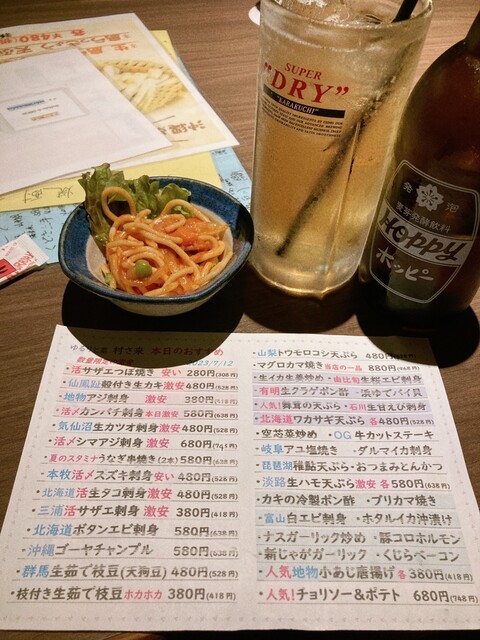 各¥480(税
SUPER
"DRY"
"KARAKUCHI"
発泡
麦芽発酵飲料
Hoppy
ホッピー
本日のおすすめ
数量限定
・活サザエつぼ焼き 安い 280円(308円)
・仙鳳趾殻付き生カキ激安480円(528円)
・地物アジ刺身 激安 380円
・活〆カンパチ刺身本日激安 580円(638円)
・気仙沼生カツオ刺身激安480円(528円)
・活〆シマアジ刺身 激安 680円(748円)
・夏のスタミナうなぎ串焼き(2本)580円(638円)
・本牧活〆スズキ刺身安い480円(528円)
・北海道活生タコ刺身激安 480円(528円)
・三浦活サザエ刺身 激安 380円(418円)
・北海道ボタンエビ刺身 580円(638円)
・沖縄ゴーヤチャンプル 580円(638円)
・群馬生茹で枝豆(天狗豆) 480円(528円)
・枝付き生茹で枝豆ホカホカ 380円(418円)
・山梨トウモロコシ天ぷら 480円
・マグロカマ焼き当店の一品 880円(968円)
・生イカ生姜炒め・由比旬生桜エビ刺身
・有明生クラゲポン酢 ・浜ゆでバイ貝
・人気!舞茸の天ぷら・石川生甘えび刺身
・北海道ワカサギ天ぷら 各480円(528円)
・空芯菜炒め ・OG牛カットステーキ
・岐阜アユ塩焼き ・ダルマイカ刺身
・琵琶湖稚鮎天ぷら・おつまみとんかつ
・淡路生ハモ天ぷら激安 各580円(638円)
・カキの冷製ポン酢 ・ブリカマ焼き
・富山白エビ刺身 ・ホタルイカ沖漬け
・ナスガーリック炒め ・豚コロホルモン
・新じゃがガーリック ・くじらベーコン
・人気地物小あじ唐揚げ各380円(418円)
・人気!チョリソー&ポテト 680円(748円)